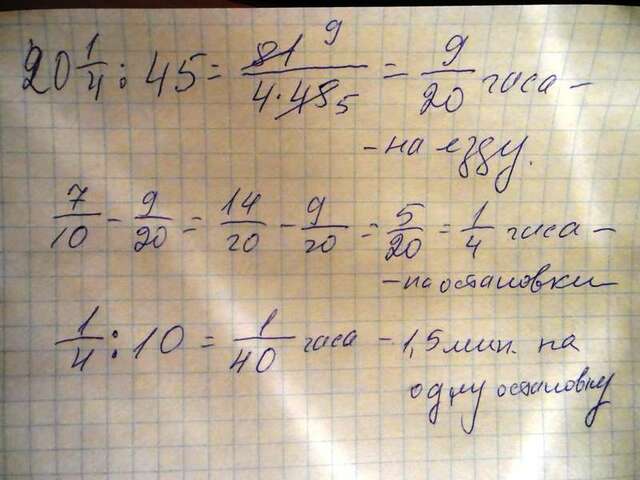 20 1/4 : 45 = 81 9 / 4·45 5 = 9/20 часа -
- на езду.
7/10 - 9/20 = 14/20 - 9/20 = 5/20 = 1/4 часа -
- на остановки
1/4 : 10 = 1/40 часа - 1,5 мин. на
одну остановку